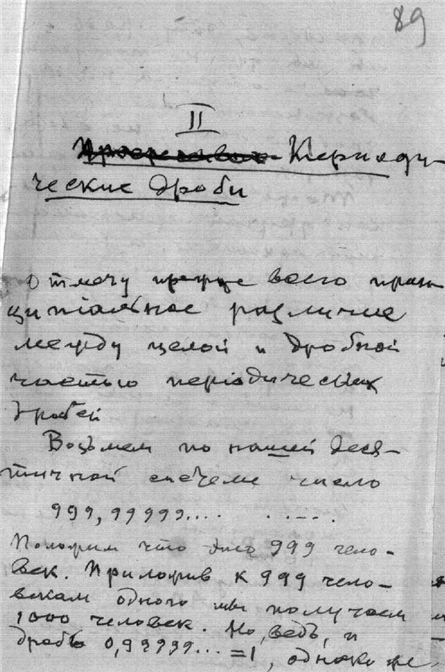 89
II
Периоди-
ческие дроби
Отмечу прежде всего прин-
ципиальное различие
между целой и дробной
частью периодических
дробей
Возьмем по нашей деся-
тичной системе число
999,99999.... .....
Положим что это 999 чело-
век. Приложив к 999 чело-
векам одного мы получаем
1000 человек. Но, ведь, и
дробь 0,99999... = 1, однако же